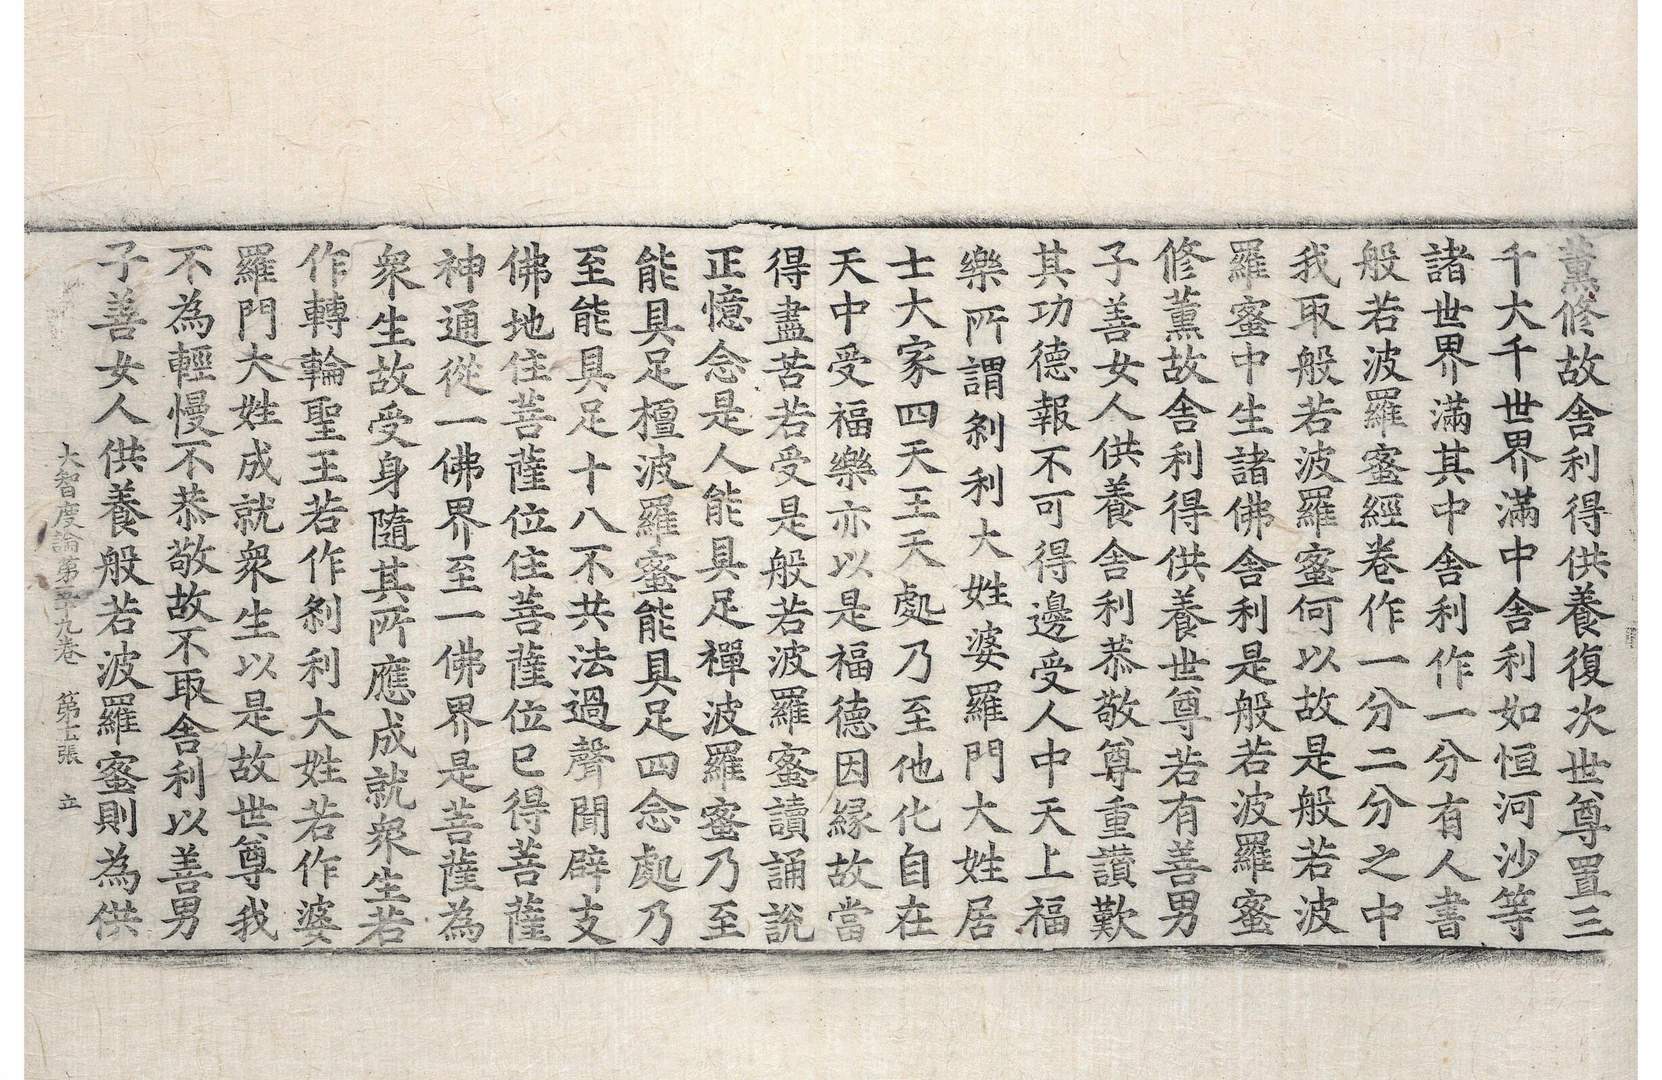 薰修故舍利得供養復次世尊置三
千大千世界滿中舍利如恒河沙等
諸世界滿其中舍利作一分有人書
般若波羅蜜經卷作一分二分之中
我取般若波羅蜜何以故是般若波
羅蜜中生諸佛舍利是般若波羅蜜
修薰故舍利得供養世尊若有善男
子善女人供養舍利恭敬尊重讚歎
其功德報不可得邊受人中天上福
樂所謂剎利大姓婆羅門大姓居
士大家四天王天處乃至他化自在
天中受福樂亦以是福德因緣故當
得盡苦若受是般若波羅蜜讀誦說
正憶念是人能具足禪波羅蜜乃至
能具足檀波羅蜜能具足四念處乃
至能具足十八不共法過聲聞辟支
佛地住菩薩位住菩薩位已得菩薩
神通從一佛界至一佛界是菩薩為
衆生故受身隨其所應成就衆生若
作轉輪聖王若作剎利大姓若作婆
羅門大姓成就衆生以是故世尊我
不為輕慢不恭敬故不取舍利以善男
子善女人供養般若波羅蜜則為供
大智度論第五十九卷 第十七張 立